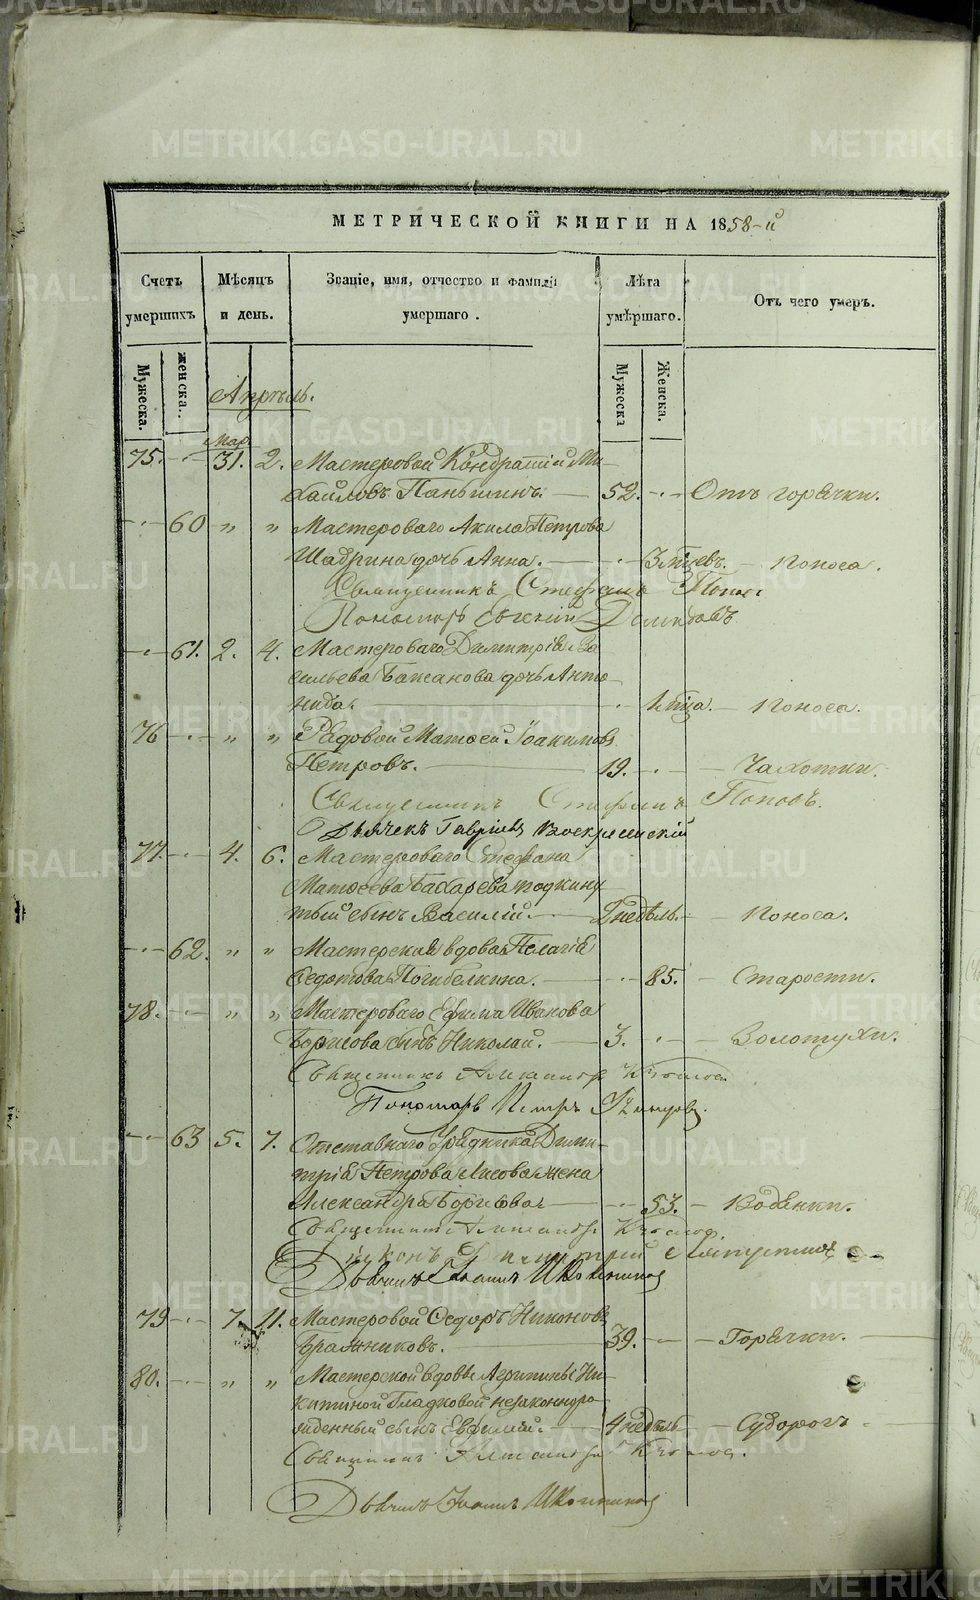 МЕТРИЧЕСКОЙ КНИГИ НА 1858-й
Счетъ умершихъ
Мѣсяцъ и день.
Званіе, имя, отчество и фамилія умершаго.
Лѣта умѣршаго.
Отъ чего умеръ.
Мужеска.
женска.
Мужеска
Женска.
Апрѣль.
Мар.
75. 31. 2. Мастеровой Кондратій Ми-
хайловъ Паньшинъ. 52. Отъ горячки.
60 " " Мастероваго Акила Петрова
Шадрина дочь Анна. 3 мѣсцевъ. Поноса.
Священникъ Стефанъ Попов
Пономарь Евгеній Демидовъ
61. 2. 4. Мастероваго Димитрія Ва
сильева Бажанова дочь Анто
нида. мѣца. Поноса.
76 " " Рядовой Матвей Іоакимовъ
Петровъ. 19. Чахотки.
Священникъ Стефанъ Поповъ.
Дьячекъ Гавріилъ Воскресенскій
77. 4. 6. Мастероваго Стефана
Матвеева Бахарева подкину
тый сынъ Василій. недѣль. Поноса.
62. " " Мастерская вдова Пелагія
Федотова Погибелкина. 85. Старости.
78. " " Мастероваго Ефима Иванова
Борисова сынъ Николай. 3. Золотухи.
Священникъ Александр
Пономарь Петръ
63 5. 7. Отставнаго Урядника Дими-
трія Петрова Лисова жена
Александра Борисова 53. Водянки.
Священникъ Александр
Діаконъ Димитрій
Дьячекъ Іоаннъ
79 7. 11. Мастеровой Федоръ Никоновъ
Бражниковъ. 39. Горячки.
80. " " Мастерской вдовы Агрипины Ни-
китиной Гладковой незаконноро
жденный сынъ Евфимій. 4 недѣль Судорогъ
Священникъ Александр
Дьячекъ Іоаннъ
METRIKI.GASO-URAL.RU